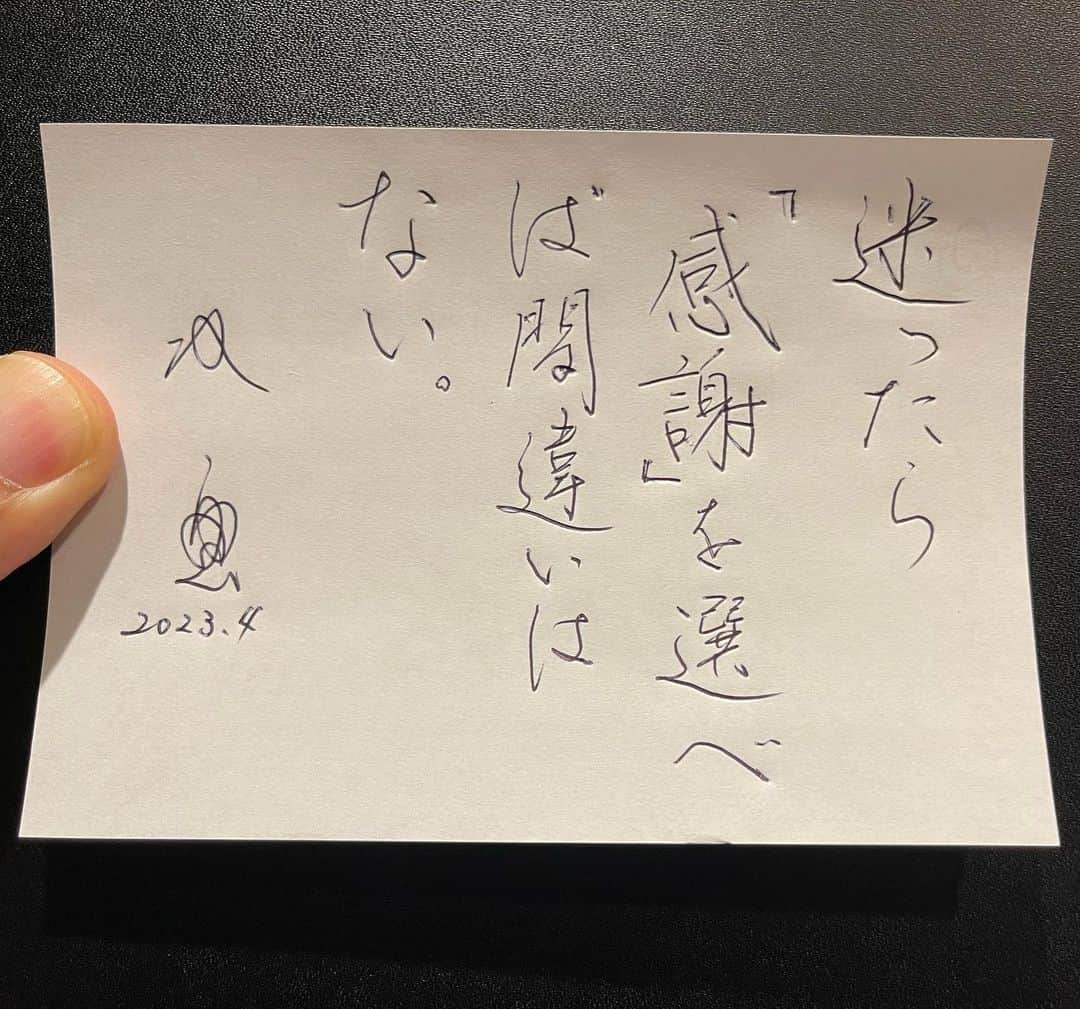 迷ったら
『感謝』を選べ
ば間違いは
ない。
2023.4